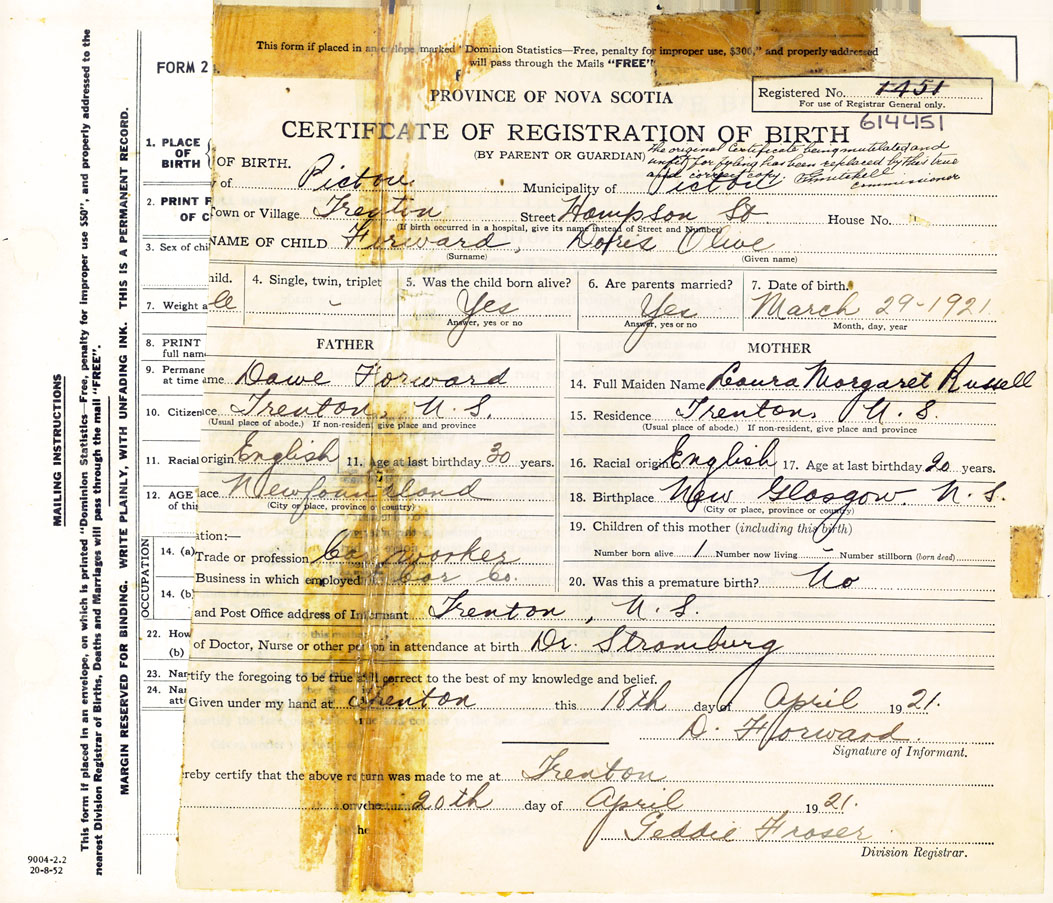 This form if placed in an envelope, marked "Dominion Statistics—Free, penalty for improper use, $300," and properly addressed
will pass through the Mails "FREE"
FORM 2
PROVINCE OF NOVA SCOTIA
Registered No. 1451
For use of Registrar General only.
614451
CERTIFICATE OF REGISTRATION OF BIRTH
(BY PARENT OR GUARDIAN)
The original Certificate being mutilated and
unfit for fyling has been replaced by this true
and correct copy.
commissioner
1. PLACE OF BIRTH
OF BIRTH.
y of Pictou Municipality of Pictou
2. PRINT F
OF C
Town or Village Trenton Street Hampson St House No.
(If birth occurred in a hospital, give its name instead of Street and Number)
3. Sex of chi
NAME OF CHILD Forward, Doris Olive
(Surname) (Given name)
hild. 4. Single, twin, triplet 5. Was the child born alive? 6. Are parents married? 7. Date of birth.
7. Weight a
le - Yes Yes March 29-1921
Answer, yes or no Answer, yes or no Month, day, year
8. PRINT
full name
FATHER MOTHER
9. Permane
at time
ame Dawe Forward 14. Full Maiden Name Laura Margaret Russell
10. Citizen
ce Trenton, N.S. 15. Residence Trenton, N.S.
(Usual place of abode.) If non-resident, give place and province (Usual place of abode.) If non-resident, give place and province
11. Racial origin English 11. Age at last birthday 30 years. 16. Racial origin English 17. Age at last birthday 20 years.
12. AGE
of this
lace Newfoundland 18. Birthplace New Glasgow N.S.
(City or place, province or country) (City or place, province or country)
19. Children of this mother (including this birth)
ation:—
Number born alive 1 Number now living - Number stillborn (born dead)
OCCUPATION
14. (a)
Trade or profession Car worker
Business in which employed Car Co. 20. Was this a premature birth? No
14. (b)
and Post Office address of Informant Trenton, N.S.
22. How
(b)
of Doctor, Nurse or other person in attendance at birth Dr. Stromburg
23. Nam
tify the foregoing to be true and correct to the best of my knowledge and belief.
24. Nam
att
Given under my hand at Trenton this 18th day of April 1921.
D. Forward
Signature of Informant.
reby certify that the above return was made to me at Trenton
on the 20th day of April 1921.
he
Geddie Fraser
Division Registrar.
9004-2.2
20-8-52
MAILING INSTRUCTIONS
This form if placed in envelope, on which is printed "Dominion Statistics—Free, penalty for improper use $50", and properly addressed to the
nearest Division Registrar of Births, Deaths and Marriages will pass through the mail "FREE".
MARGIN RESERVED FOR BINDING. WRITE PLAINLY, WITH UNFADING INK. THIS IS A PERMANENT RECORD.